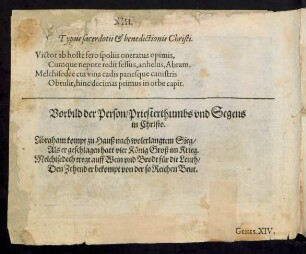 XIII.
Typus sacerdotii & benedictionis Christi.
Victor ab hoste fero spoliis oneratus opimis,
Cumque nepote redit fessus, anhelus, Abram.
Melchisedec cui vina cadis panesque canistris
Obtulit, hinc decimas primus in orbe capit.
Vorbild der Person/Priesterthumbs vnd Segens
in Christo.
Abraham kompt zu Hauß nach wolerlangtem Sieg/
Als er geschlagen hatt vier König Groß im Krieg.
Melchisedech tregt auff Wein vnd Brodt für die Leuth/
Den Zehend er bekompt von der so Reichen Beut.
Genes. XIV.